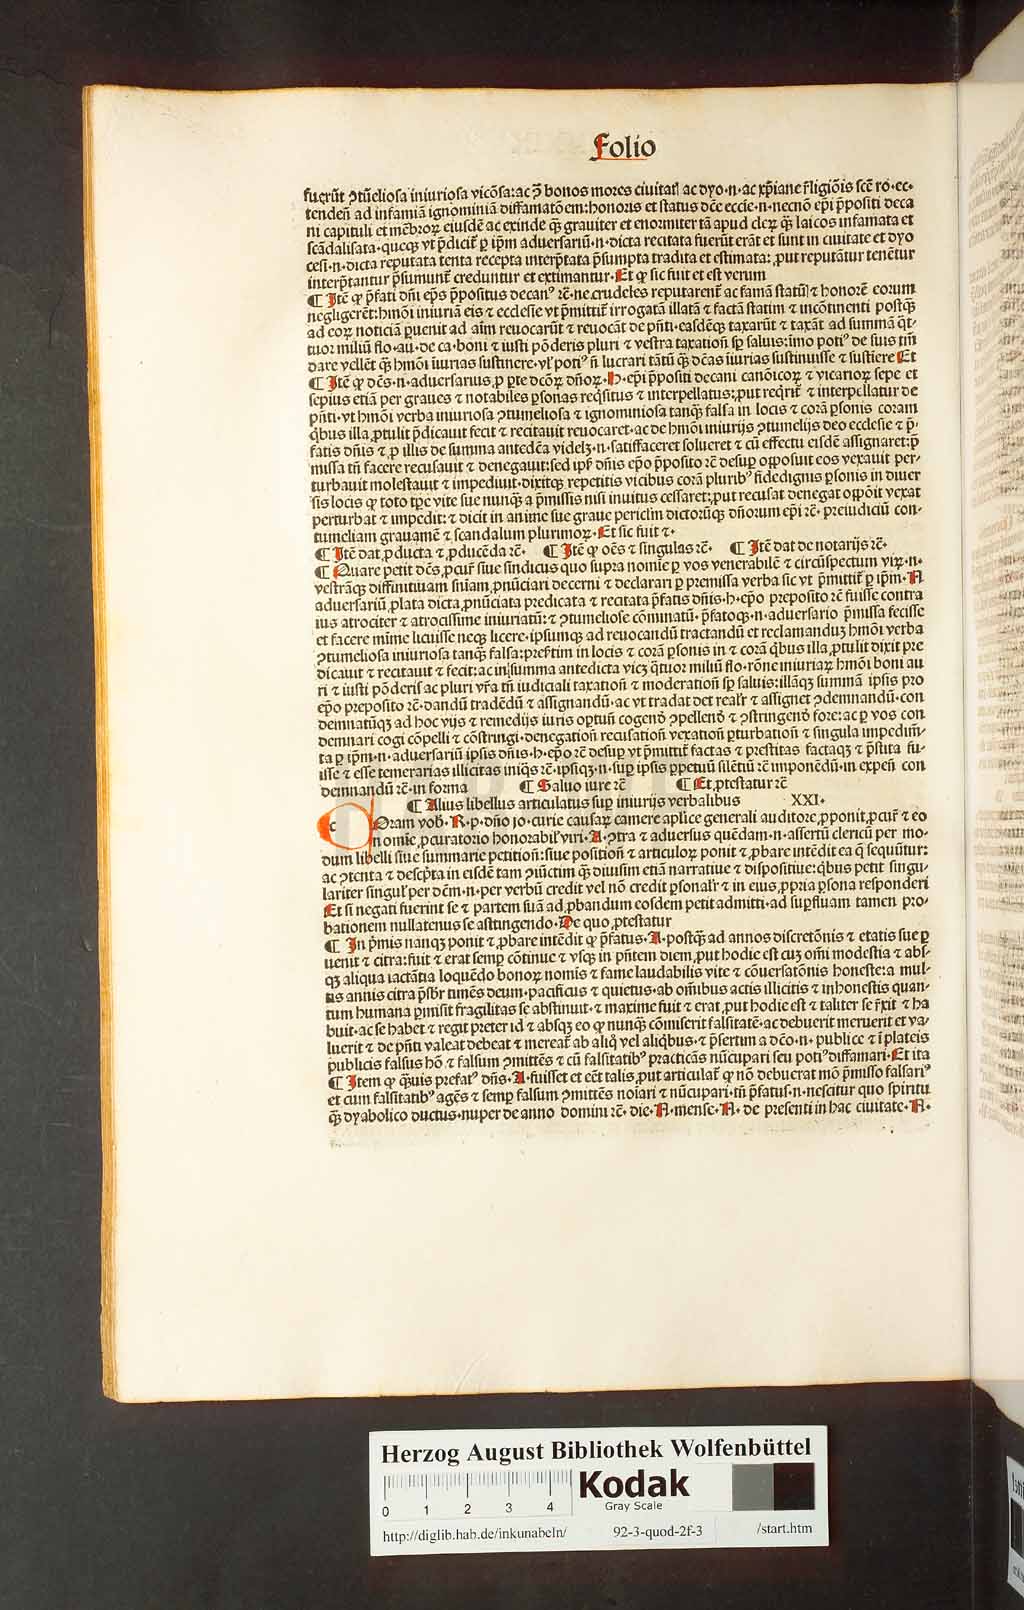 Folio
fuerūt ꝯtūeliosa iniuriosa vicōsa: ac ꝯ̄ bonos mores ciuitatꝭ ac dyo·n·ac xp̄iane r̄ligiōis scē ro·ec·
tendeñ ad infamiā ignominiā diffamatōem: honoris et status dēe eccie·n·necnō ep̄i p̄positi deca
ni capituli et mēbroꝝ eiusdē ac exinde qꝫ grauiter et enormiter tā apud cleꝝ qꝫ laicos infamata et
scādalisata·quecꝫ vt p̄dicit̄ ꝑ ip̄m aduersariū·n·dicta recitata fuerūt erāt et sunt in ciuitate et dyo
cesi·n·dicta reputata tenta recepta interp̄tata p̄sumpta tradita et estimata: ꝓut reputātur tenētur
interp̄tantur p̄sumunt̄ creduntur et extimantur·Et ꝙ sic fuit et est verum
¶ Itē ꝙ p̄fati dn̄i ep̄s p̄positus decanꝰ rē·ne crudeles reputarent̄ ac famā statū ⁊ honorē eorum
negligerēt: hmōi iniuriā eis ⁊ ecclesie vt p̄mittit̄ irrogatā illatā ⁊ factā statim ⁊ incōtinenti postqꝫ
ad eoꝝ noticiā ꝑuenit ad aīm reuocarūt ⁊ reuocāt de p̄nti·easdēcꝫ taxarūt ⁊ taxāt ad summā q̄t·
tuor miliū flo·au·de ca·boni ⁊ iusti pōderis pluri ⁊ vestra taxatioñ sꝑ saluis: imo potiꝰ de suis tm̄
dare vellēt qꝫ hmōi iiurias sustinere·vl potꝰ ñ lucrari tātū qꝫ dēas iiurias sustinuisse ⁊ sustiere Et
¶ Itē ꝙ dēs·n·aduersarius ꝓ ꝑte dcōꝝ dn̄oꝝ·H·ep̄i p̄positi decani canōicoꝝ ⁊ vicarioꝝ sepe et
sepius etiā per graues ⁊ notabiles ꝑsonas req̄situs ⁊ interpellatus: ꝓut req̄rit̄ ⁊ interpellatur de
p̄nti·vt hmōi verba iniuriosa ꝯtumeliosa ⁊ ignominiosa tanqꝫ falsa in locis ⁊ corā ꝑsonis coram
q̄bus illa ꝓtulit p̄dicauit fecit ⁊ recitauit reuocaret·ac de hmōi iniurijs ꝯtumelijs deo ecclesie ⁊ p̄·
fatis dn̄is ⁊ ꝓ illis de summa antedēa videlꝫ·n·satisfaceret solueret ⁊ cū effectu eisdē assignaret: p̄
missa tn̄ facere recusauit ⁊ denegauit: sed ip̄s dn̄is ep̄o p̄posito rē desuꝑ opposuit eos vexauit per·
turbauit molestauit ⁊ impediuit·dixitqꝫ repetitis vicibus corā pluribꝰ fidedignis ꝑsonis in diuer
sis locis ꝙ toto tꝑe vite sue nunqꝫ a p̄missis nisi inuitus cessaret: ꝓut recusat denegat oppōit vexat
perturbat ⁊ impedit: ⁊ dicit in anime sue graue pericłm dictorūqꝫ dn̄orum ep̄i rē·preiudiciū con·
tumeliam grauamē ⁊ scandalum plurimoꝝ·Et sic fuit ⁊·
¶ Itē dat ꝓducta ⁊ ꝓducēda rē· ¶ Itē ꝙ oēs ⁊ singulas rē· ¶ Itē dat de notarijs rē·
¶ Quare petit dēs ꝓcur̄ siue sindicus quo supra noīe ꝑ vos venerabilē ⁊ circūspectum viꝝ·n·
vestrāqꝫ diffinitiuam sn̄iam ꝓnūciari decerni ⁊ declarari ꝑ premissa verba sic vt p̄mittit̄ ꝑ ip̄m·N
aduersariū ꝓlata dicta ꝓnūciata predicata ⁊ recitata p̄fatis dn̄is·h·ep̄o preposito rē fuisse contra
ius atrociter ⁊ atrocissime iniuriatū: ⁊ ꝯtumeliose cōminatū·p̄fatoqꝫ·n·aduersario p̄missa fecisse
et facere mīme licuisse neqꝫ licere·ipsumqꝫ ad reuocandū tractandū et reclamanduꝫ hmōi verba
ꝯtumeliosa iniuriosa tanqꝫ falsa: presertim in locis ⁊ corā ꝑsonis in ⁊ corā q̄bus illa ꝓtulit dixit pre
dicauit ⁊ recitauit ⁊ fecit: ac in summa antedicta vicꝫ q̄tuor miliū flo·rōne iniuriaꝝ hmōi boni au
ri ⁊ iusti pōderis ac pluri vr̄a tn̄ iudiciali taxatioñ ⁊ moderatioñ sꝑ saluis: illāqꝫ summā ipsis pro
ep̄o preposito rē·dandū tradēdū ⁊ assignandū·ac vt tradat det realr̄ ⁊ assignet ꝯdemnandū·con
demnatūqꝫ ad hoc vijs ⁊ remedijs iuris optuñ cogendꝰ ꝯpellendꝰ ⁊ ꝯstringendꝰ fore: ac ꝑ vos con
demnari cogi cōpelli ⁊ cōstringi·denegatioñ recusatioñ vexatioñ ꝑturbatioñ ⁊ singula impedim̄·
ta ꝑ ip̄m·n·aduersariū ipsis dn̄is·h·ep̄o rē desuꝑ vt p̄mittit̄ factas ⁊ prestitas factaqꝫ ⁊ p̄stita fu·
isse ⁊ esse temerarias illicitas iniq̄s rē·ipsiqꝫ·n·suꝑ ipsis ꝑpetuū silētiū rē imponēdū·in expeñ con
demnandū rē·in forma ¶ Saluo iure rē ¶ Et ꝓtestatur rē
¶ Alius libellus articulatus suꝑ iniurijs verbalibus XXI·
COram vob·R·p·dn̄o jo·curie causaꝝ camere aplice generali auditore ꝓponit ꝓcur̄ ⁊ eo
noīe ꝓcuratorio honorabil viri·A·ꝯtra ⁊ aduersus quēdam·n·assertū clericū per mo·
dum libelli siue summarie petitioñ: siue positioñ ⁊ articuloꝝ ponit ⁊ ꝓbare intēdit ea q̄ sequūtur:
ac ꝯtenta ⁊ descp̄ta in eisdē tam ꝯiūctim qꝫ diuisim etiā narratiue ⁊ dispositiue: q̄bus petit singu·
lariter singul per dēm·n·per verbū credit vel nō credit ꝑsonalr̄ ⁊ in eius ꝓpria ꝑsona responderi
Et si negati fuerint se ⁊ partem suā ad ꝓbandum eosdem petit admitti·ad suꝑfluam tamen pro·
bationem nullatenus se astingendo·De quo ꝓtestatur
¶ In p̄mis nanqꝫ ponit ⁊ ꝓbare intēdit ꝙ p̄fatus·A·postqꝫ ad annos discretōnis ⁊ etatis sue ꝑ
uenit ⁊ citra: fuit ⁊ erat semꝑ cōtinue ⁊ vsqꝫ in p̄ntem diem ꝓut hodie est cuꝫ om̄i modestia ⁊ abs·
qꝫ aliqua iactātia loquēdo bonoꝝ nomīs ⁊ fame laudabilis vite ⁊ cōuersatōnis honeste: a mul·
tis annis citra p̄sbr̄ timēs deum·pacificus ⁊ quietus·ab om̄ibus actis illicitis ⁊ inhonestis quan·
tum humana ꝑmisit fragilitas se abstinuit·⁊ maxime fuit ⁊ erat ꝓut hodie est ⁊ taliter se r̄xit ⁊ ha
buit·ac se habet ⁊ regit preter id ⁊ absqꝫ eo ꝙ nunqꝫ cōmiserit falsitatē·ac debuerit meruerit et va·
luerit ⁊ de p̄nti valeat debeat ⁊ mereat̄ ab aliq̄ vel aliq̄bus·⁊ p̄sertim a dēo·n·publice ⁊ ī plateis
publicis falsus hō ⁊ falsum ꝯmittēs ⁊ cū falsitatibꝰ practicās nūcupari seu potiꝰ diffamari·Et ita
¶ Item ꝙ q̄uis prefatꝰ dn̄s·A·fuisset et eēt talis ꝓut articulat̄ ꝙ nō debuerat mō p̄misso falsariꝰ
et cum falsitatibꝰ agēs ⁊ semꝑ falsum ꝯmittēs noīari ⁊ nūcupari·tn̄ p̄fatus·n·nescitur quo spiritu
qꝫ dyabolico ductus·nuper de anno domini rē·die·N·mense·N·de presenti in hac ciuitate·N·
Herzog August Bibliothek Wolfenbüttel
0 1 2 3 4
Kodak
Gray Scale
http://diglib.hab.de/inkunabeln/ 92-3-quod-2f-3 /start.htm